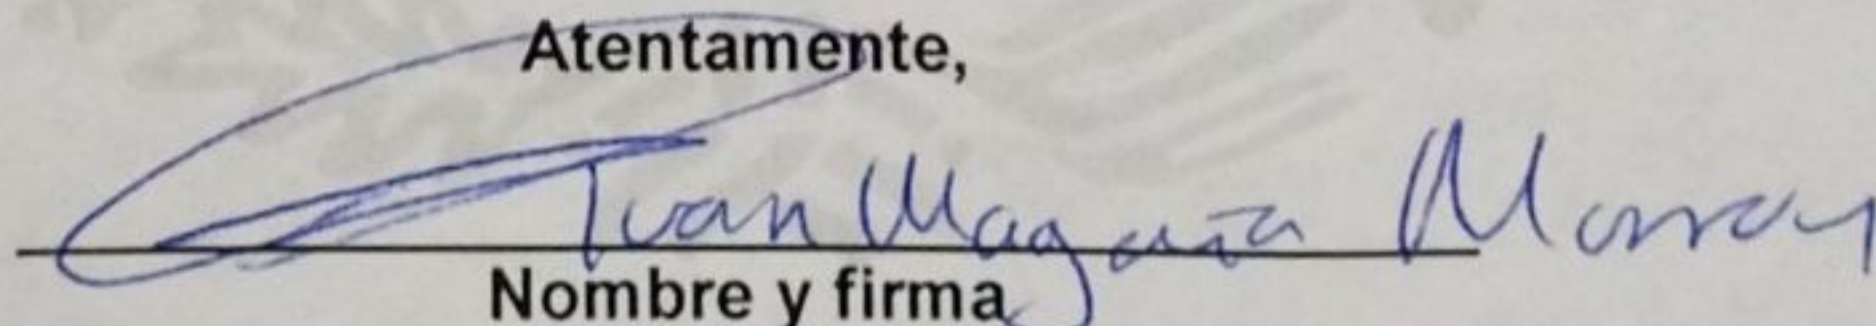 Atentamente,
Ivan Magaña
Nombre y firma